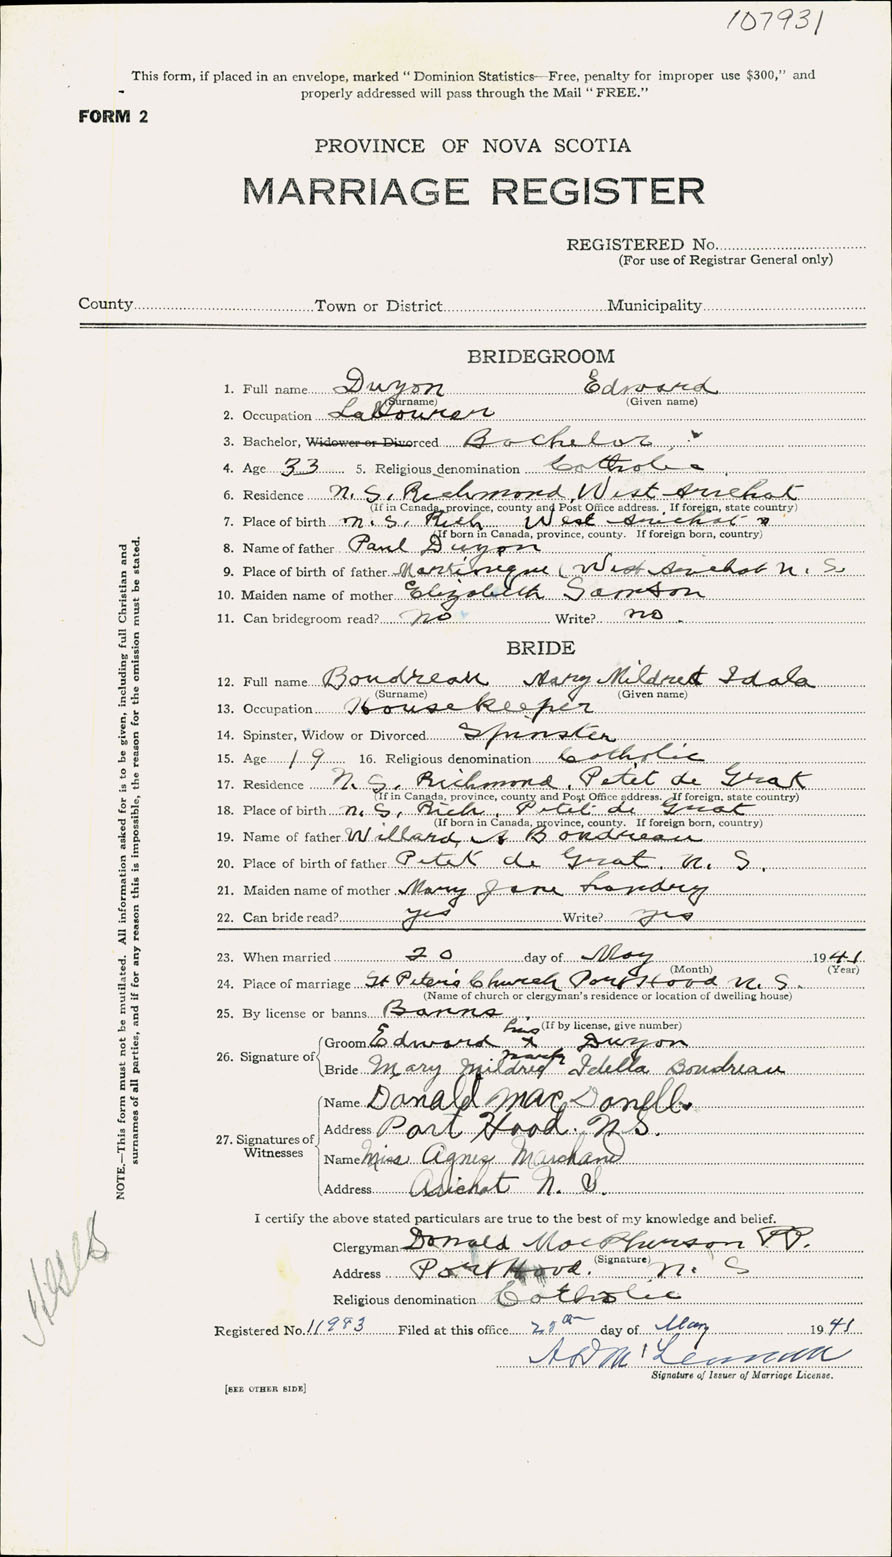 107931
This form, if placed in an envelope, marked “ Dominion Statistics—Free, penalty for improper use $300,” and
properly addressed will pass through the Mail “ FREE.”
FORM 2
PROVINCE OF NOVA SCOTIA
MARRIAGE REGISTER
REGISTERED No.
(For use of Registrar General only)
County Town or District Municipality
BRIDEGROOM
1. Full name Duyon Edward
(Surname) (Given name)
2. Occupation Labourer
3. Bachelor, Widower or Divorced Bachelor
4. Age 33 5. Religious denomination Catholic
6. Residence N. S. Richmond, West Arichat
(If in Canada, province, county and Post Office address. If foreign, state country)
7. Place of birth N. S. Rich West Arichat
(If born in Canada, province, county. If foreign born, country)
8. Name of father Paul Duyon
9. Place of birth of father Martinique (West Arichat N. S.
10. Maiden name of mother Elizabeth Samson
11. Can bridegroom read? no Write? no.
BRIDE
12. Full name Boudreau Mary Mildred Idala
(Surname) (Given name)
13. Occupation Housekeeper
14. Spinster, Widow or Divorced Spinster
15. Age 19 16. Religious denomination Catholic
17. Residence N. S. Richmond, Petit de Grat
(If in Canada, province, county and Post Office address. If foreign, state country)
18. Place of birth N. S. Rich. Petit de Grat
(If born in Canada, province, county. If foreign born, country)
19. Name of father Willard A Boudreau
20. Place of birth of father Petit de Grat. N. S.
21. Maiden name of mother Mary Jane Landry
22. Can bride read? yes Write? yes
23. When married 20 day of May 1941
(Month) (Year)
24. Place of marriage St Peter's Church Port Hood N. S.
(Name of church or clergyman's residence or location of dwelling house)
25. By license or banns Banns
(If by license, give number)
26. Signature of
Groom Edward his x mark Duyon
Bride Mary Mildred Idella Boudreau
27. Signatures of Witnesses
Name Donald MacDonell
Address Port Hood. N.S.
Name Miss Agnes Marchand
Address Arichat N. S.
I certify the above stated particulars are true to the best of my knowledge and belief.
Clergyman Donald MacPherson P.P.
(Signature)
Address Port Hood. N. S
Religious denomination Catholic
Registered No. 11983 Filed at this office 20th day of May 1941
A D McLennan
Signature of Issuer of Marriage License.
[SEE OTHER SIDE]
NOTE.—This form must not be mutilated. All information asked for is to be given, including full Christian and
surnames of all parties, and if for any reason this is impossible, the reason for the omission must be stated.